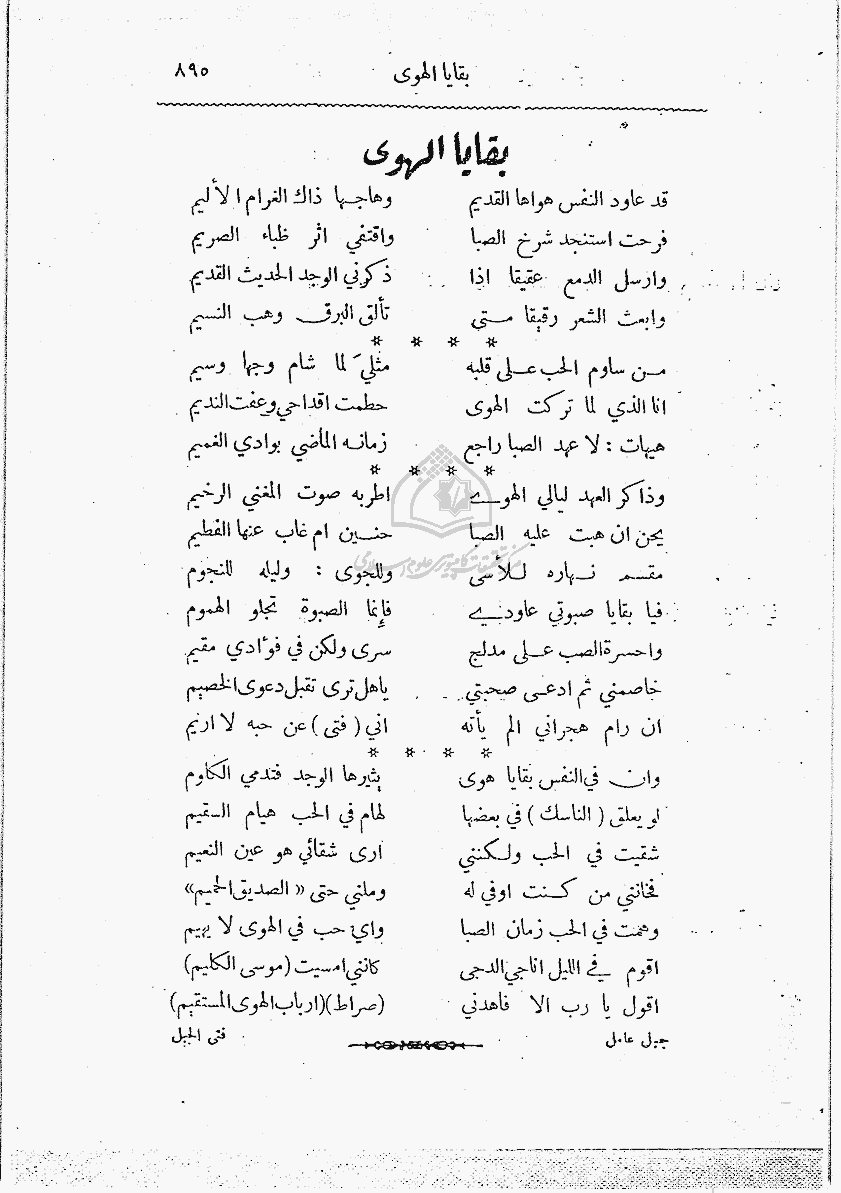 بقايا الهوى ٨٩٥
بقايا الهوى
قد عاود النفس هواها القديم وهاجها ذاك الغرام الأليم
فرحت استنجد شرخ الصبا واقتفي اثر ظباء الصريم
وارسل الدمع عقيقا اذا ذكرني الوجد الحديث القديم
وابعث الشعر رقيقا متى تألق البرق وهب النسيم
* * * *
من ساوم الحب على قلبه مثلي لما شام وجها وسيم
انا الذي لما تركت الهوى حطمت اقداحي وعفت النديم
هيهات : لا عهد الصبا راجع زمانه الماضي بوادي الغميم
* * * *
وذاكر العهد ليالي الهوى اطربه صوت المغني الرخيم
يحن ان هبت عليه الصبا حنين ام غاب عنها الفطيم
مقسم نهاره للأسى وللجوى : وليله للنجوم
فيا بقايا صبوتي عاودي فإنما الصبوة تجلو الهموم
واحسرة الصب على مدلج سرى ولكن في فؤادي مقيم
خاصمني ثم ادعى صحبتي ياهل ترى تقبل دعوى الخصيم
ان رام هجراني الم يأته اني (فتى) عن حبه لا اريم
* * * *
وان في النفس بقايا هوى يثيرها الوجد فتدمي الكلوم
لو يعلق (الناسك) في بعضها لهام في الحب هيام السقيم
شقيت في الحب ولكنني ارى شقائي هو عين النعيم
فخانني من كنت اوفي له وملني حتى «الصديق الحميم»
وهمت في الحب زمان الصبا واي حب في الهوى لا يهيم
اقوم في الليل اناجي الدجى كانني امسيت (موسى الكليم)
اقول يا رب الا فاهدني (صراط)(ارباب الهوى المستقيم)
جبل عامل فتى الجبل